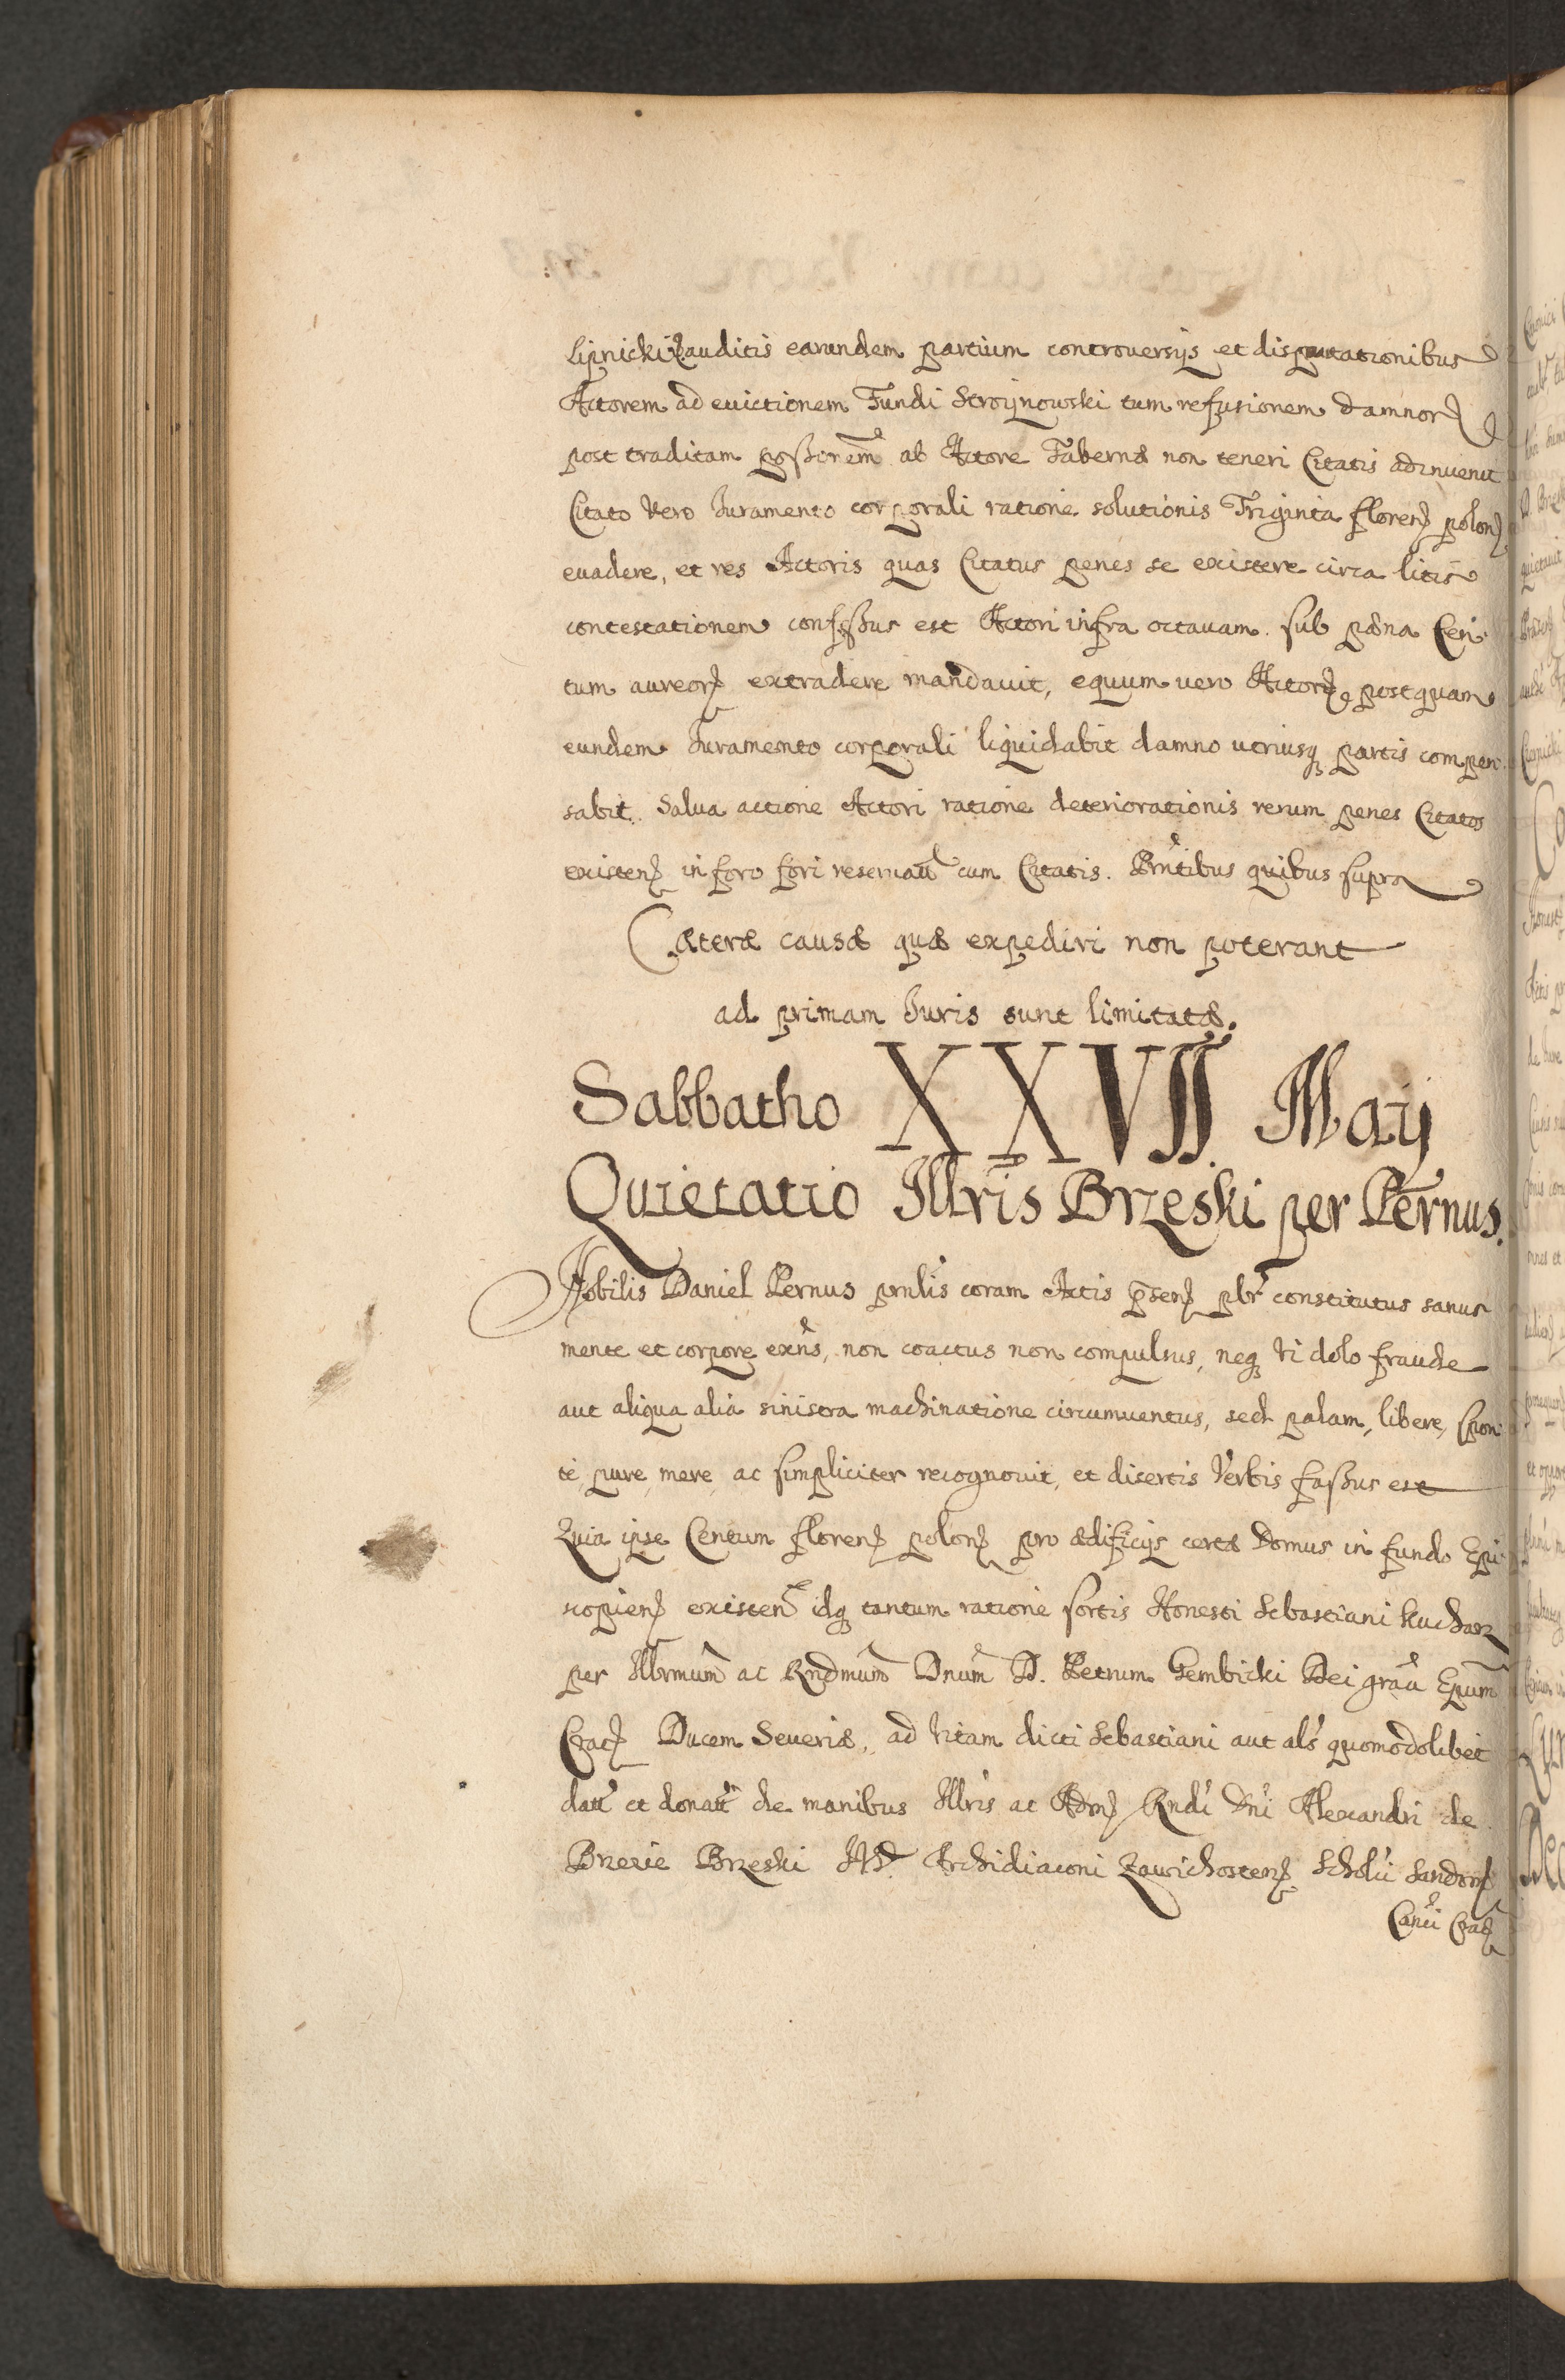 Lipnicki, auditis earundem partium controversijs et disputationibus
Actorem ad euictionem Fundi Stroynowski tum refusionem damnor
post traditam possionem ab Actore Tabernæ non teneri Citatis adinuenit
Citato Vero Iuramento corporali ratione solutionis Triginta floren polon
euadere, et res Actoris quas Citatus penes se existere circa litis
contestationem confessus est Actori infra octauam sub pæna Cen
tum aureor extradere mandauit, equum uero Actor postquam
eundem Iuramento corporali liquidabit damno utriusq partis compen
sabit. Salua actione Actori ratione deteriorationis rerum penes Citatos
existen in foro fori reseruatt cum Citatis. Prntibus quibus supra
Cæteræ causæ quæ expediri non poterant
ad primam Iuris sunt limitatæ.
Sabbatho XXVII Maij
Quietatio Illris Brzeski per Pernus.
Nobilis Daniel Pernus prnlis coram Actis psen pbr constitutus sanus
mente et corpore exns, non coactus non compulsus, neq Vi dolo fraude
aut aliqua alia sinistra machinatione circumuentus, sed palam, libere, spon
te, pure, mere, ac simpliciter recognouit, et disertis Verbis fassus est
Quia ipse Centum floren polon pro ædificijs certæ Domus in fundo Epi
scopien existen idq tantum ratione sortis Honesti Sebastiani Kucharz
per Illrmum ac Rndmum Dnum D. Petrum Gembicki Dei graa Epum
Crac Ducem Seueriæ, ad Vitam dicti Sebastiani aut als quomodolibet
datt et donatt de manibus Illris ac Adm Rndi Dni Alexandri de
Brzezie Brzeski Archidiaconi Zawichosten Scholci Sandom
Canci Crac